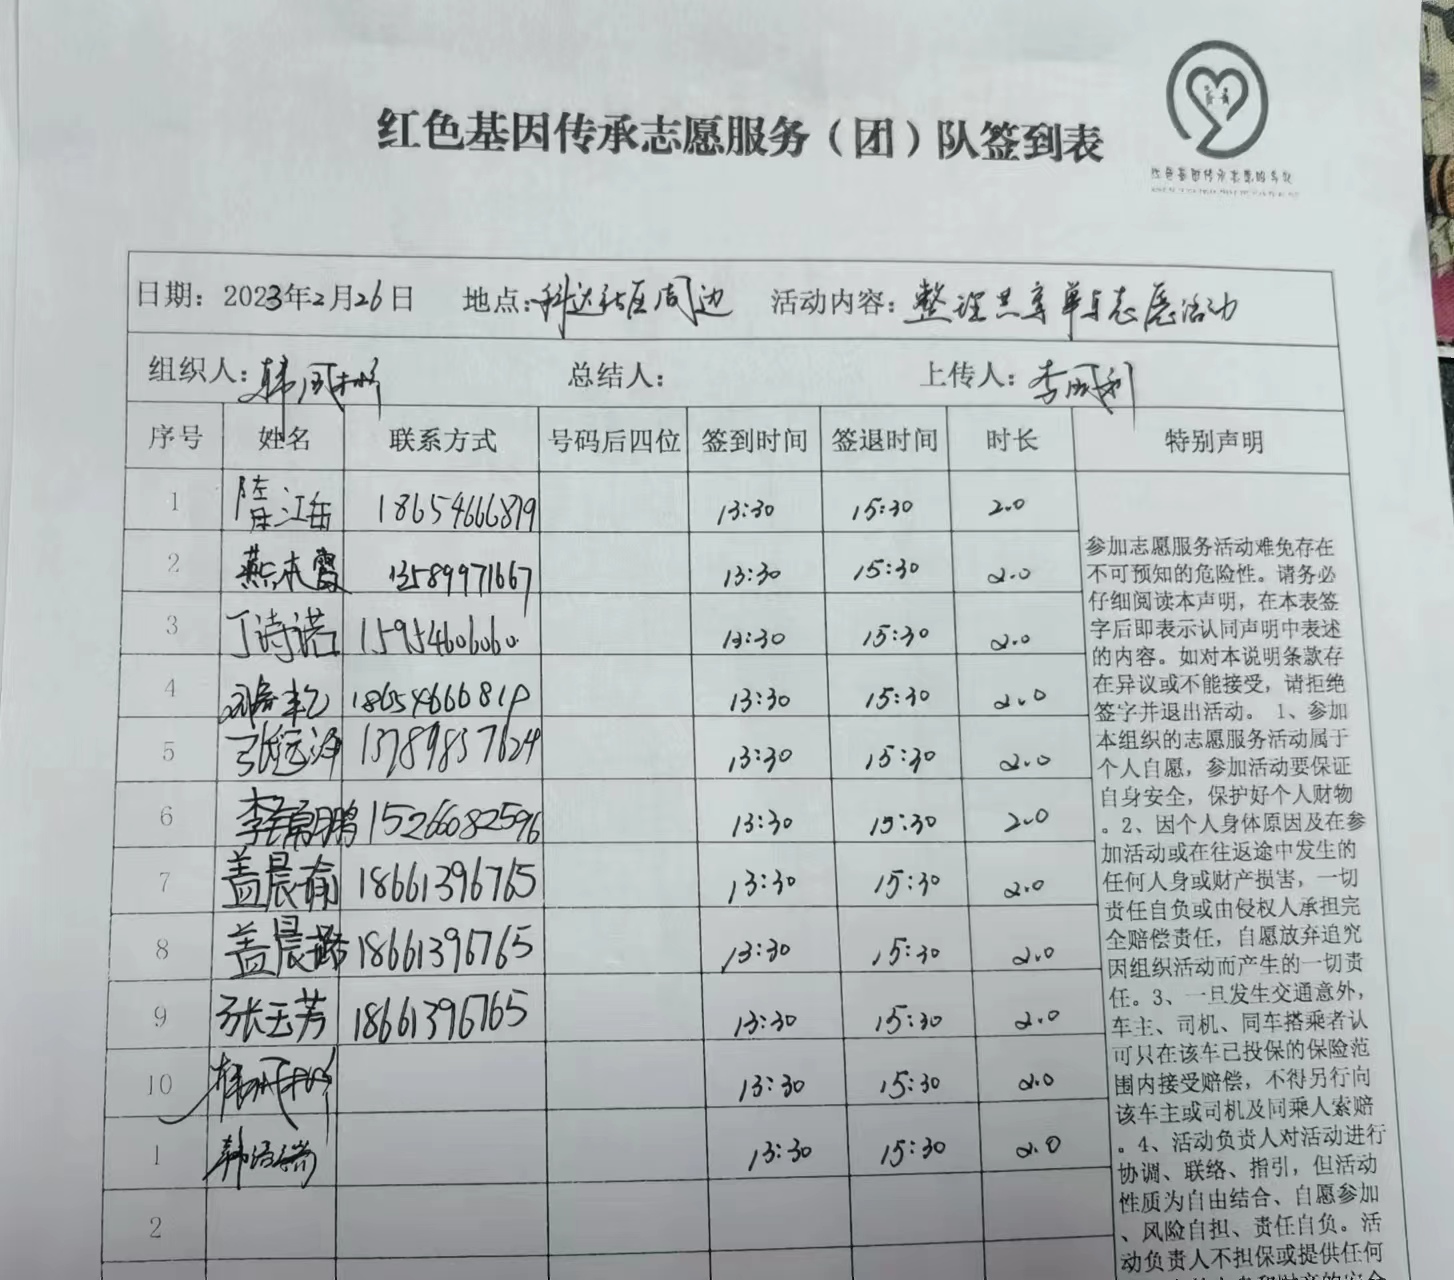 红色基因传承志愿服务（团）队签到表
红色基因传承志愿服务队
日期：2023年2月26日 地点：科达社区周边 活动内容：整理共享单车志愿活动
组织人：韩凤彬 总结人： 上传人：李凤利
序号 姓名 联系方式 号码后四位 签到时间 签退时间 时长 特别声明
1 18654666819 13:30 15:30 2.0
2 燕本霞 13589971667 13:30 15:30 2.0
3 丁诗诺 15954606060 13:30 15:30 2.0
4 18654666819 13:30 15:30 2.0
5 13789837624 13:30 15:30 2.0
6 15266082596 13:30 15:30 2.0
7 盖晨瑜 18661396765 13:30 15:30 2.0
8 盖晨璐 18661396765 13:30 15:30 2.0
9 张玉芳 18661396765 13:30 15:30 2.0
10 韩凤彬 13:30 15:30 2.0
1 13:30 15:30 2.0
2
参加志愿服务活动难免存在
不可预知的危险性。请务必
仔细阅读本声明，在本表签
字后即表示认同声明中表述
的内容。如对本说明条款存
在异议或不能接受，请拒绝
签字并退出活动。 1、参加
本组织的志愿服务活动属于
个人自愿，参加活动要保证
自身安全，保护好个人财物
。2、因个人身体原因及在参
加活动或在往返途中发生的
任何人身或财产损害，一切
责任自负或由侵权人承担完
全赔偿责任，自愿放弃追究
因组织活动而产生的一切责
任。3、一旦发生交通意外，
车主、司机、同车搭乘者认
可只在该车已投保的保险范
围内接受赔偿，不得另行向
该车主或司机及同乘人索赔
。4、活动负责人对活动进行
协调、联络、指引，但活动
性质为自由结合、自愿参加
、风险自担、责任自负。活
动负责人不担保或提供任何